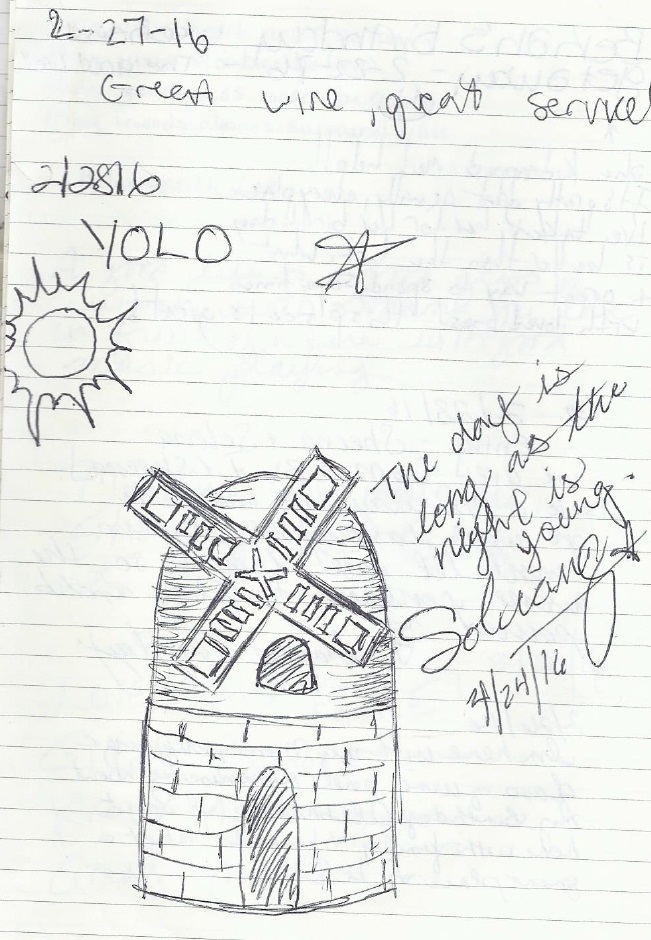 2-27-16
Great wine, great service!
2/28/16
YOLO
The day is
long as the
night is
young.
Solvang
4/24/16